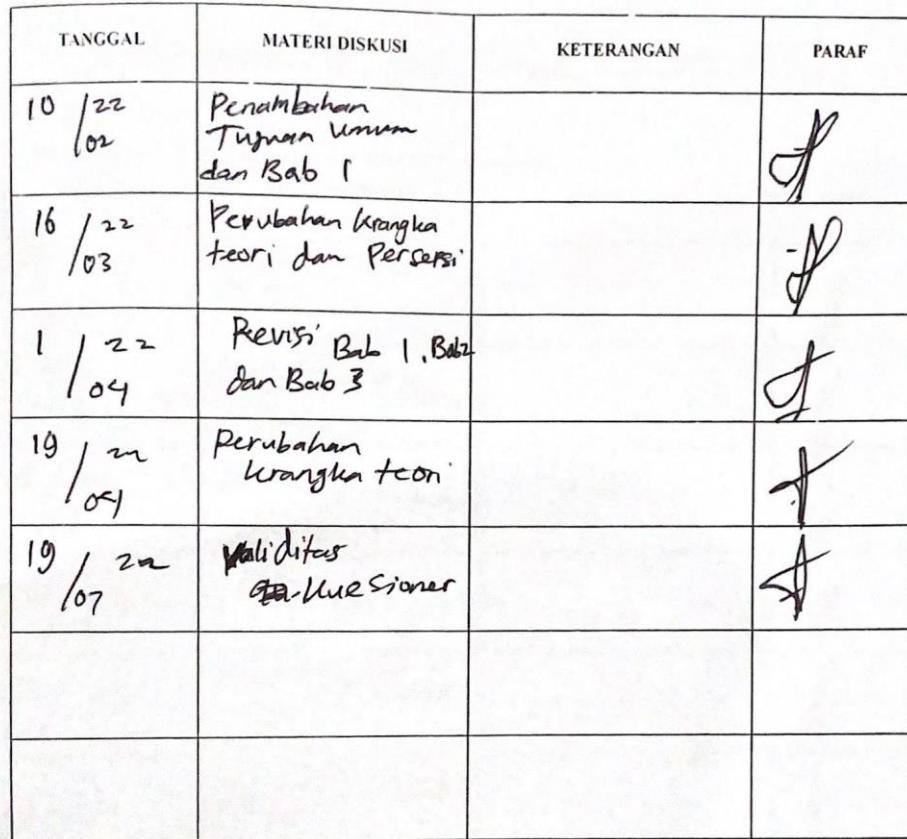 TANGGAL MATERI DISKUSI KETERANGAN PARAF
10 /22 Penambahan
02 Tujuan Umum
dan Bab 1
16 / 22 Perubahan krangka
03 teori dan Persersi
1 / 22 Revisi Bab 1, Bab2
04 dan Bab 3
19 / 22 Perubahan
04 krangka teori
19 / 22 Validitas
07 Kuesioner